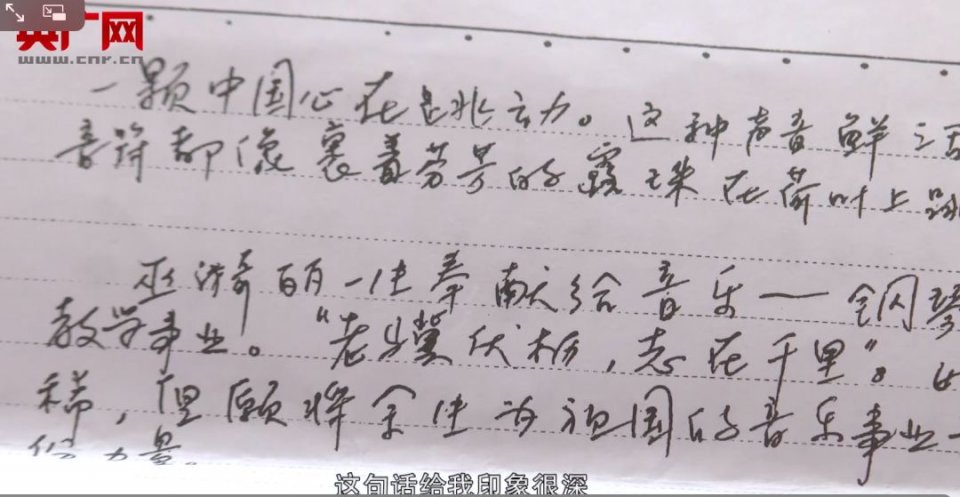 央广网
www.cnr.cn
一颗中国心在跳动。这种声音鲜活
音符都像裹着芬芳的露珠在荷叶上跳
巫漪丽一生奉献给音乐——钢琴
教学事业。“老骥伏枥，志在千里”。
稀，但愿将余生为祖国的音乐事业
份力量。
这句话给我印象很深